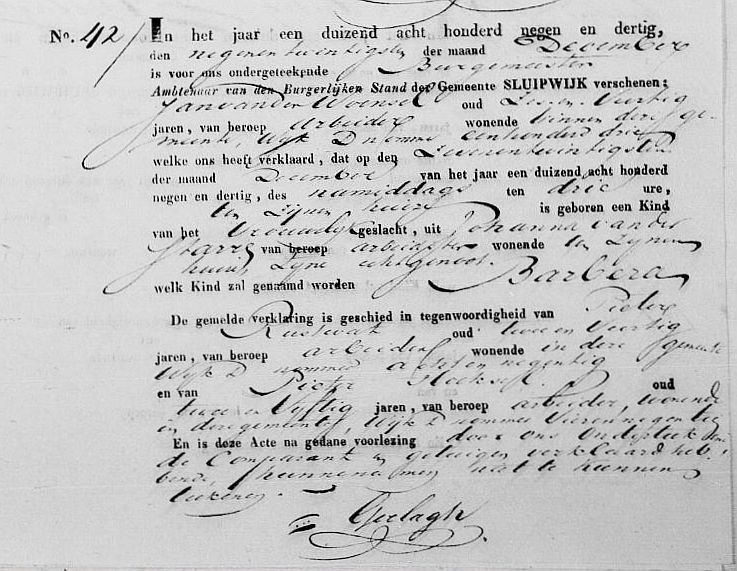 No. 42 / In het jaar een duizend acht honderd negen en dertig,
den negenentwintigsten der maand December
is voor ons ondergeteekende Burgemeester
Ambtenaar van den Burgerlijken Stand der Gemeente SLUIPWIJK verschenen:
Jan van der Woensel oud Zeven Veertig
jaren, van beroep Arbeider wonende binnen deze ge-
meente, Wijk D nommer eenhonderd drie
welke ons heeft verklaard, dat op den Zevenentwintigsten
der maand December van het jaar een duizend acht honderd
negen en dertig, des namiddags ten drie ure,
ten Zijnen huize is geboren een Kind
van het Vrouwelijk geslacht, uit Johanna van der
Starre van beroep arbeidster wonende ten Zijnen
huize, Zijne echtgenoot.
welk Kind zal genaamd worden Barbera
De gemelde verklaring is geschied in tegenwoordigheid van Pieter
oud twee en Veertig
jaren, van beroep arbeider wonende in deze gemeente
Wijk D nommer acht en negentig
en van Pieter oud
twee en Vyftig jaren, van beroep arbeider, wonende
in deze gemeente, Wijk D nommer Vier en negentig
En is deze Acte na gedane voorlezing door ons onderteekend
de Comparant en getuigen verklaard heb-
bende, niet te kunnen
teekenen.